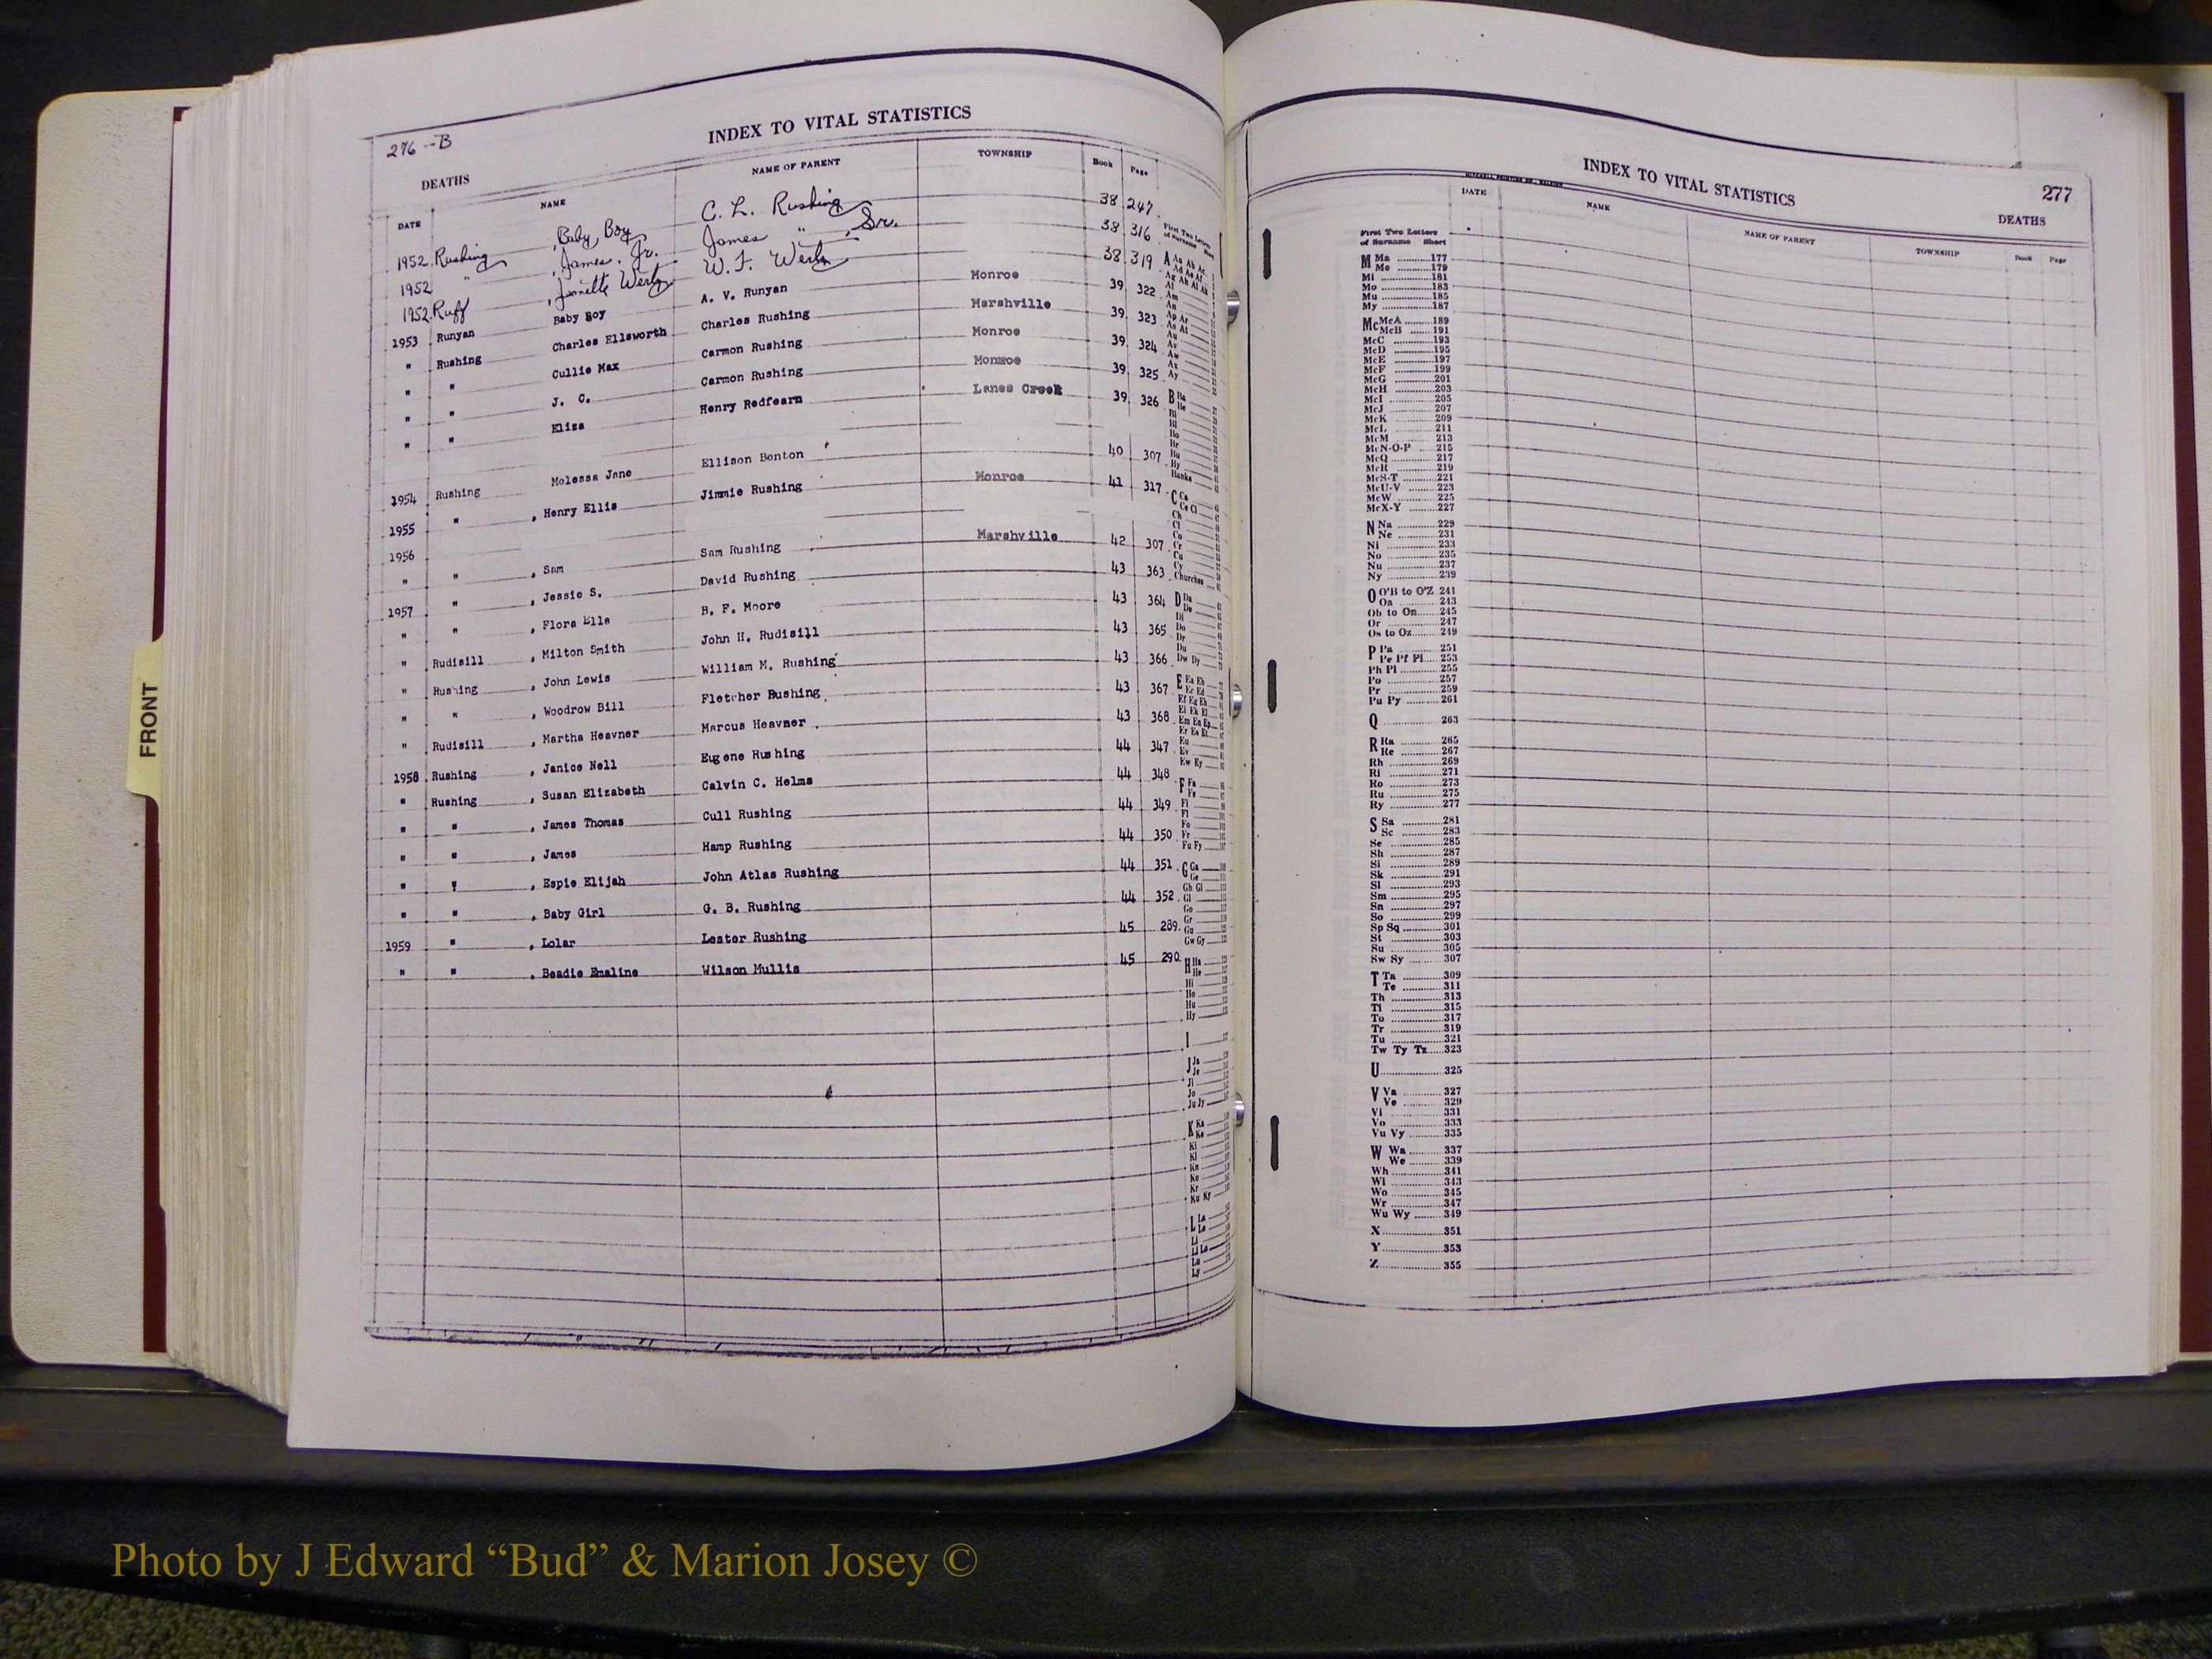 276-B
INDEX TO VITAL STATISTICS
DEATHS
DATE NAME NAME OF PARENT TOWNSHIP Book Page
1952 Rushing , Baby Boy C. L. Rushing 38 247
1952 " , James, Jr. James " , Sr. 38 316
1952 Ruff , W. F. 38 319
1953 Runyan Baby Boy A. V. Runyan Monroe 39 322
" Rushing Charles Ellsworth Charles Rushing Marshville 39 323
" " Cullie Max Carmon Rushing Monroe 39 324
" " J. C. Carmon Rushing Monroe 39 325
" " Eliza Henry Redfearn Lanes Creek 39 326
1954 Rushing Molessa Jane Ellison Benton 40 307
1955 " , Henry Ellis Jimmie Rushing Monroe 41 317
1956
" " , Sam Sam Rushing Marshville 42 307
1957 " , Jessie S. David Rushing 43 363
" " , Flora Ella B. F. Moore 43 364
" Rudisill , Milton Smith John H. Rudisill 43 365
" Rushing , John Lewis William M. Rushing 43 366
" " , Woodrow Bill Fletcher Rushing 43 367
" Rudisill , Martha Heavner Marcus Heavner 43 368
1958 Rushing , Janice Nell Eugene Rushing 44 347
" Rushing , Susan Elizabeth Calvin C. Helms 44 348
" " , James Thomas Cull Rushing 44 349
" " , James Hamp Rushing 44 350
" " , Espie Elijah John Atlas Rushing 44 351
" " , Baby Girl G. B. Rushing 44 352
1959 " , Lolar Lester Rushing 45 289
" " , Beadie Emaline Wilson Mullis 45 290
INDEX TO VITAL STATISTICS
277
DEATHS
DATE NAME NAME OF PARENT TOWNSHIP Book Page
First Two Letters
of Surname Sheet
M Ma 177
Me 179
Mi 181
Mo 183
Mu 185
My 187
Mc McA 189
McB 191
McC 193
McD 195
McE 197
McF 199
McG 201
McH 203
McI 205
McJ 207
McK 209
McL 211
McM 213
McN-O-P 215
McQ 217
McR 219
McS-T 221
McU-V 223
McW 225
McX-Y 227
N Na 229
Ne 231
Ni 233
No 235
Nu 237
Ny 239
O O'B to O'Z 241
Oa 243
Ob to On 245
Or 247
Os to Oz 249
P Pa 251
Pe Pf Pi 253
Ph Pl 255
Po 257
Pr 259
Pu Py 261
Q 263
R Ra 265
Re 267
Rh 269
Ri 271
Ro 273
Ru 275
Ry 277
S Sa 281
Sc 283
Se 285
Sh 287
Si 289
Sk 291
Sl 293
Sm 295
Sn 297
So 299
Sp Sq 301
St 303
Su 305
Sw Sy 307
T Ta 309
Te 311
Th 313
Ti 315
To 317
Tr 319
Tu 321
Tw Ty Tz 323
U 325
V Va 327
Ve 329
Vi 331
Vo 333
Vu Vy 335
W Wa 337
We 339
Wh 341
Wi 343
Wo 345
Wr 347
Wu Wy 349
X 351
Y 353
Z 355
FRONT
Photo by J Edward “Bud” & Marion Josey ©